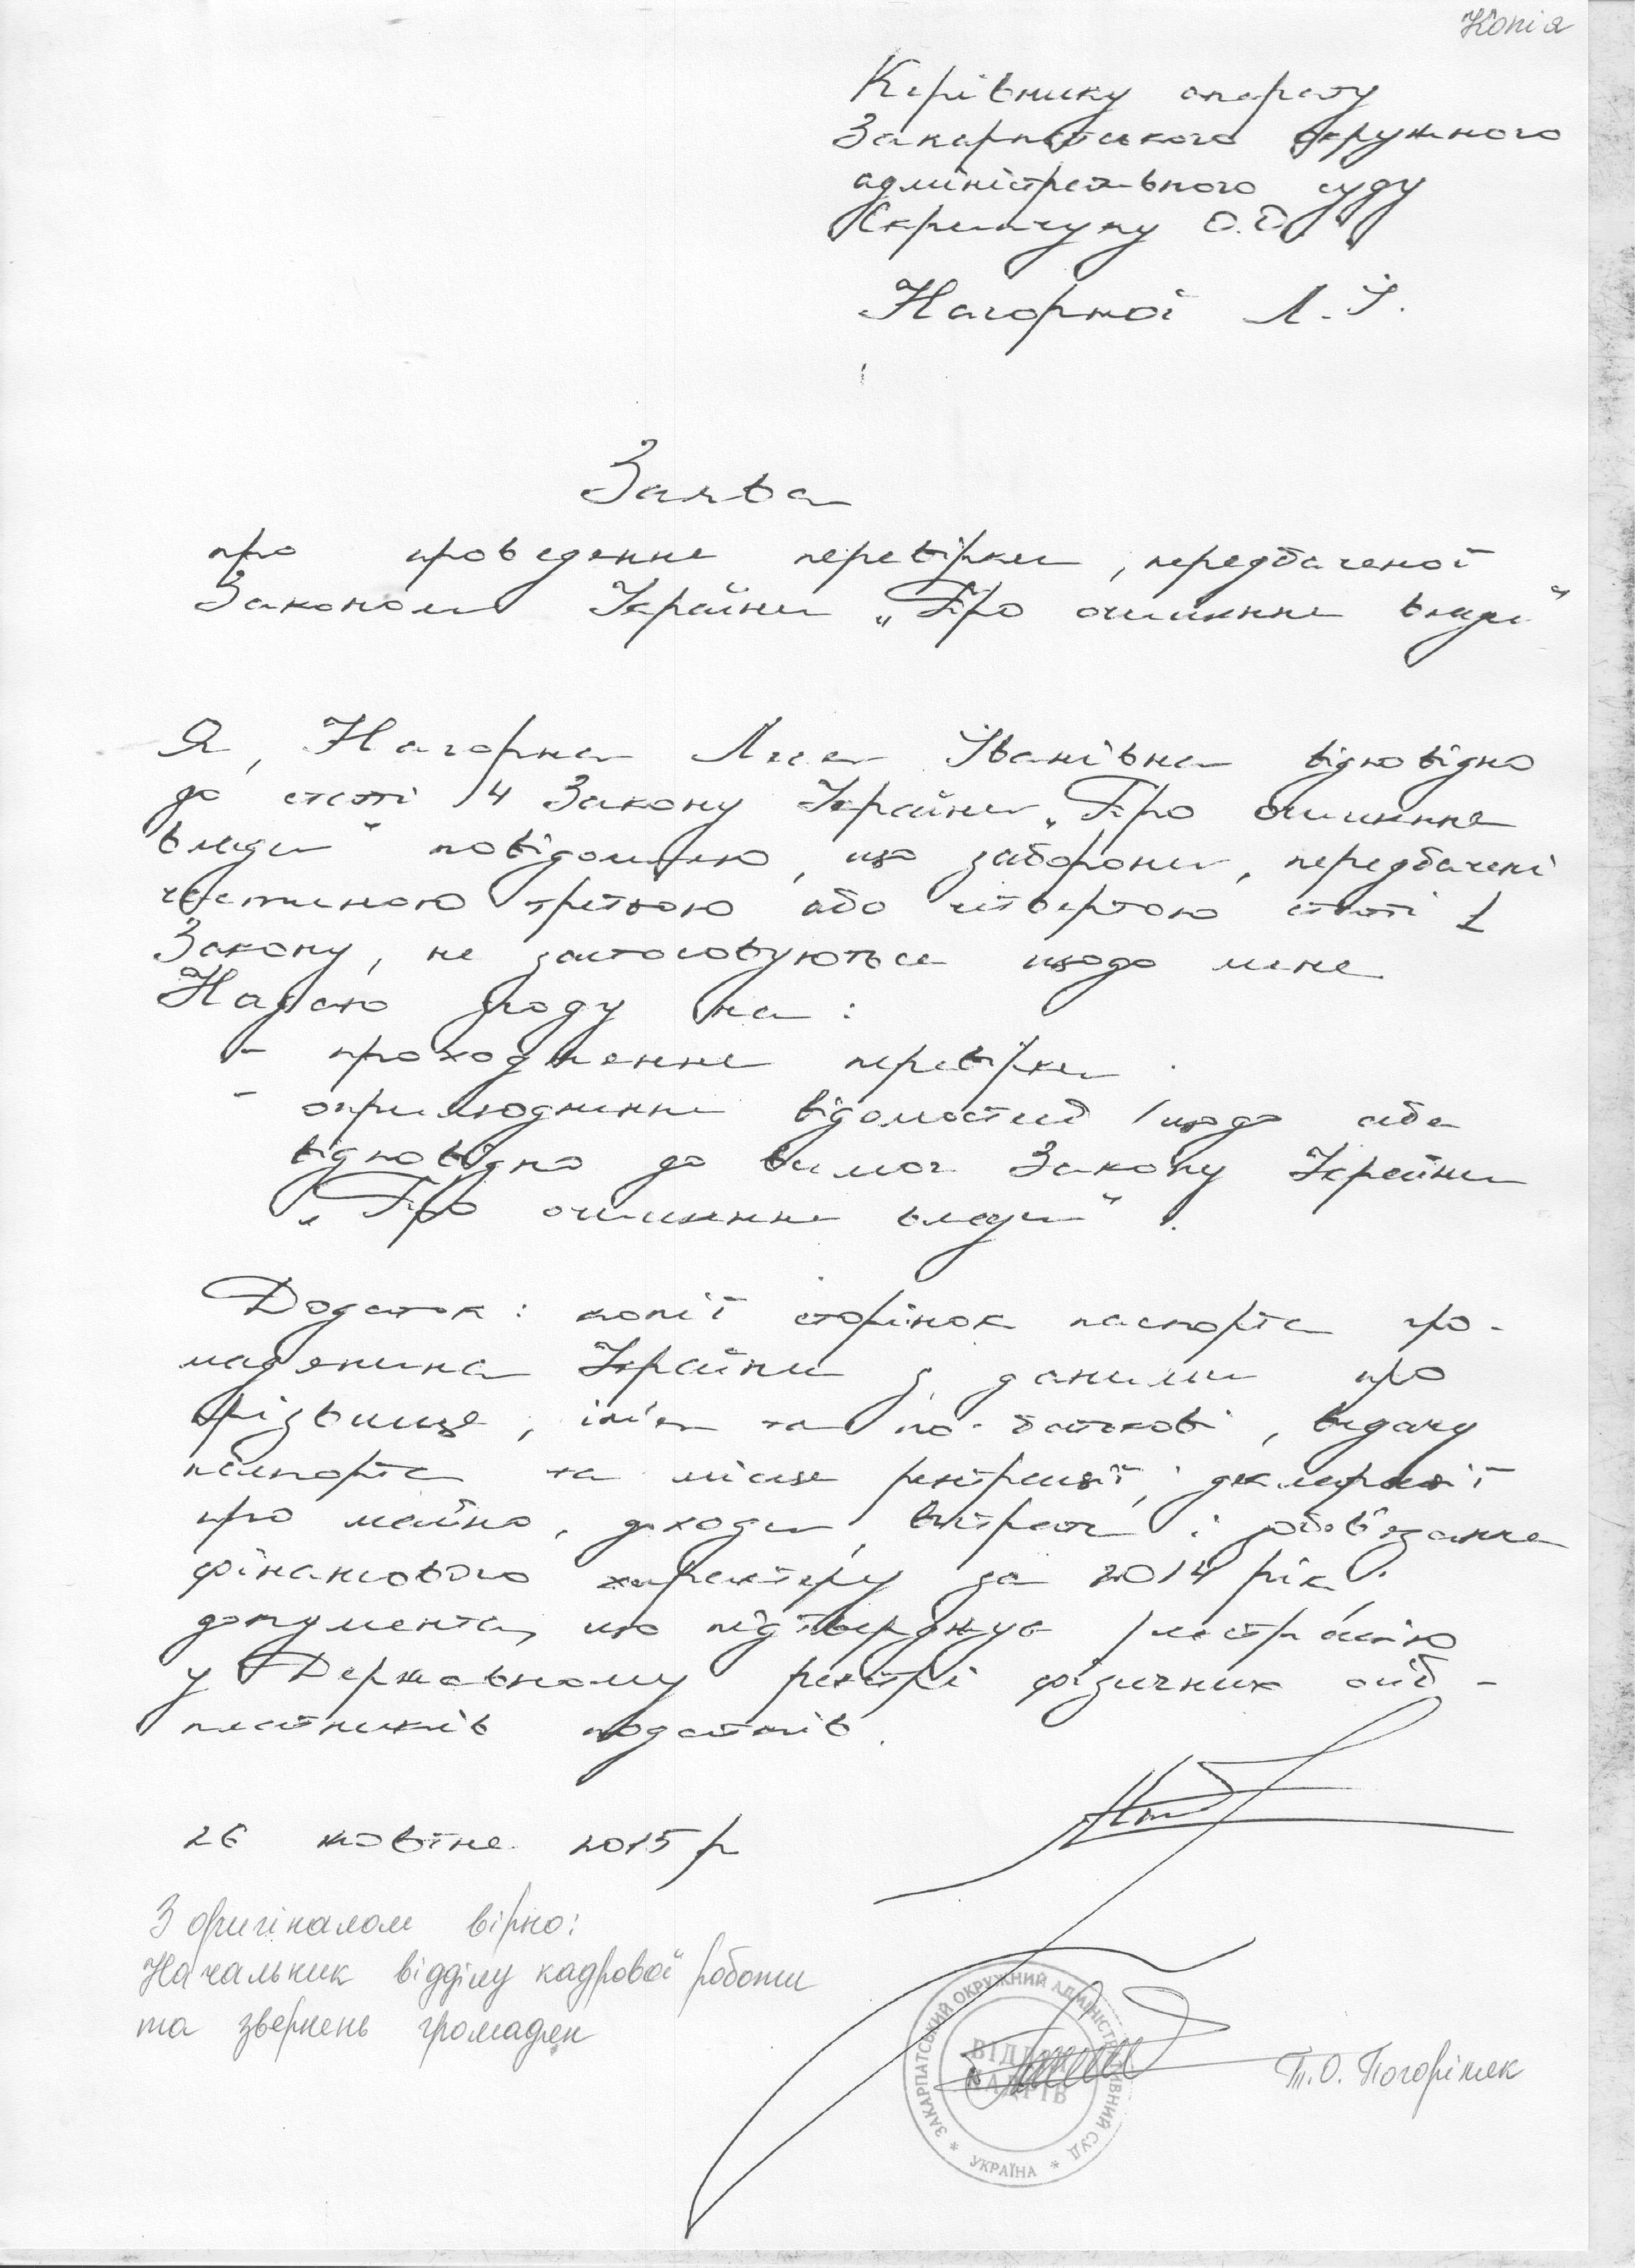 Копія
Керівнику апарату
Закарпатського окружного
адміністративного суду
О.О.
Нагорної Л.І.
Заява
про проведення перевірки, передбаченої
Законом України „Про очищення влади"
Я, Нагорна Іванівна відповідно
до статті 4 Закону України „Про очищення
влади" повідомляю, що заборони, передбачені
частиною третьою або четвертою статті 1
Закону, не застосовуються щодо мене
Надаю згоду на:
- проходження перевірки
- оприлюднення відомостей щодо себе
відповідно до вимог Закону України
„Про очищення влади".
Додаток: копії сторінок паспорта гро-
мадянина України з даними про
прізвище, ім'я та по-батькові, видачу
паспорта та місце реєстрації, декларації
про майно, доходи, витрати і зобов'язання
фінансового характеру за 2014 рік,
документа, що підтверджує реєстрацію
у Державному реєстрі фізичних осіб -
платників податків.
26 жовтня 2015 р
З оригіналом вірно:
Начальник відділу кадрової роботи
та звернень громадян
ЗАКАРПАТСЬКИЙ ОКРУЖНИЙ АДМІНІСТРАТИВНИЙ СУД * УКРАЇНА *
ВІДДІЛ
КАДРІВ
Т.О. Погоріляк